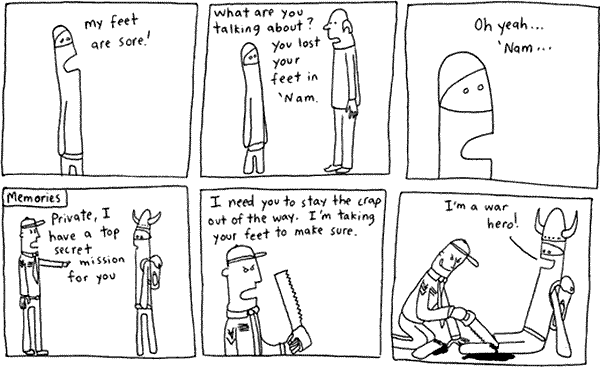 my feet
are sore!
What are you
talking about?
you lost
your
feet in
'Nam.
Oh yeah...
'Nam...
Memories
Private, I
have a top
secret
mission
for you
I need you to stay the crap
out of the way. I'm taking
your feet to make sure.
I'm a war
hero!